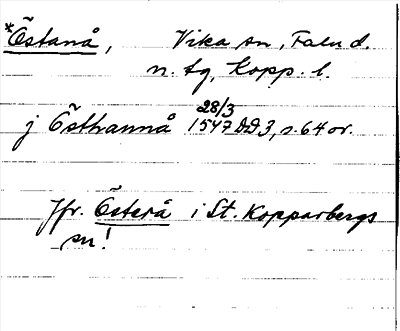 *Östanå, Vika sn, Falu d.
n. tg, Kopp. l.
j Östhannå 28/3 1547 DD3, s. 64 or.
Jfr. Österå i St. Kopparbergs
sn!